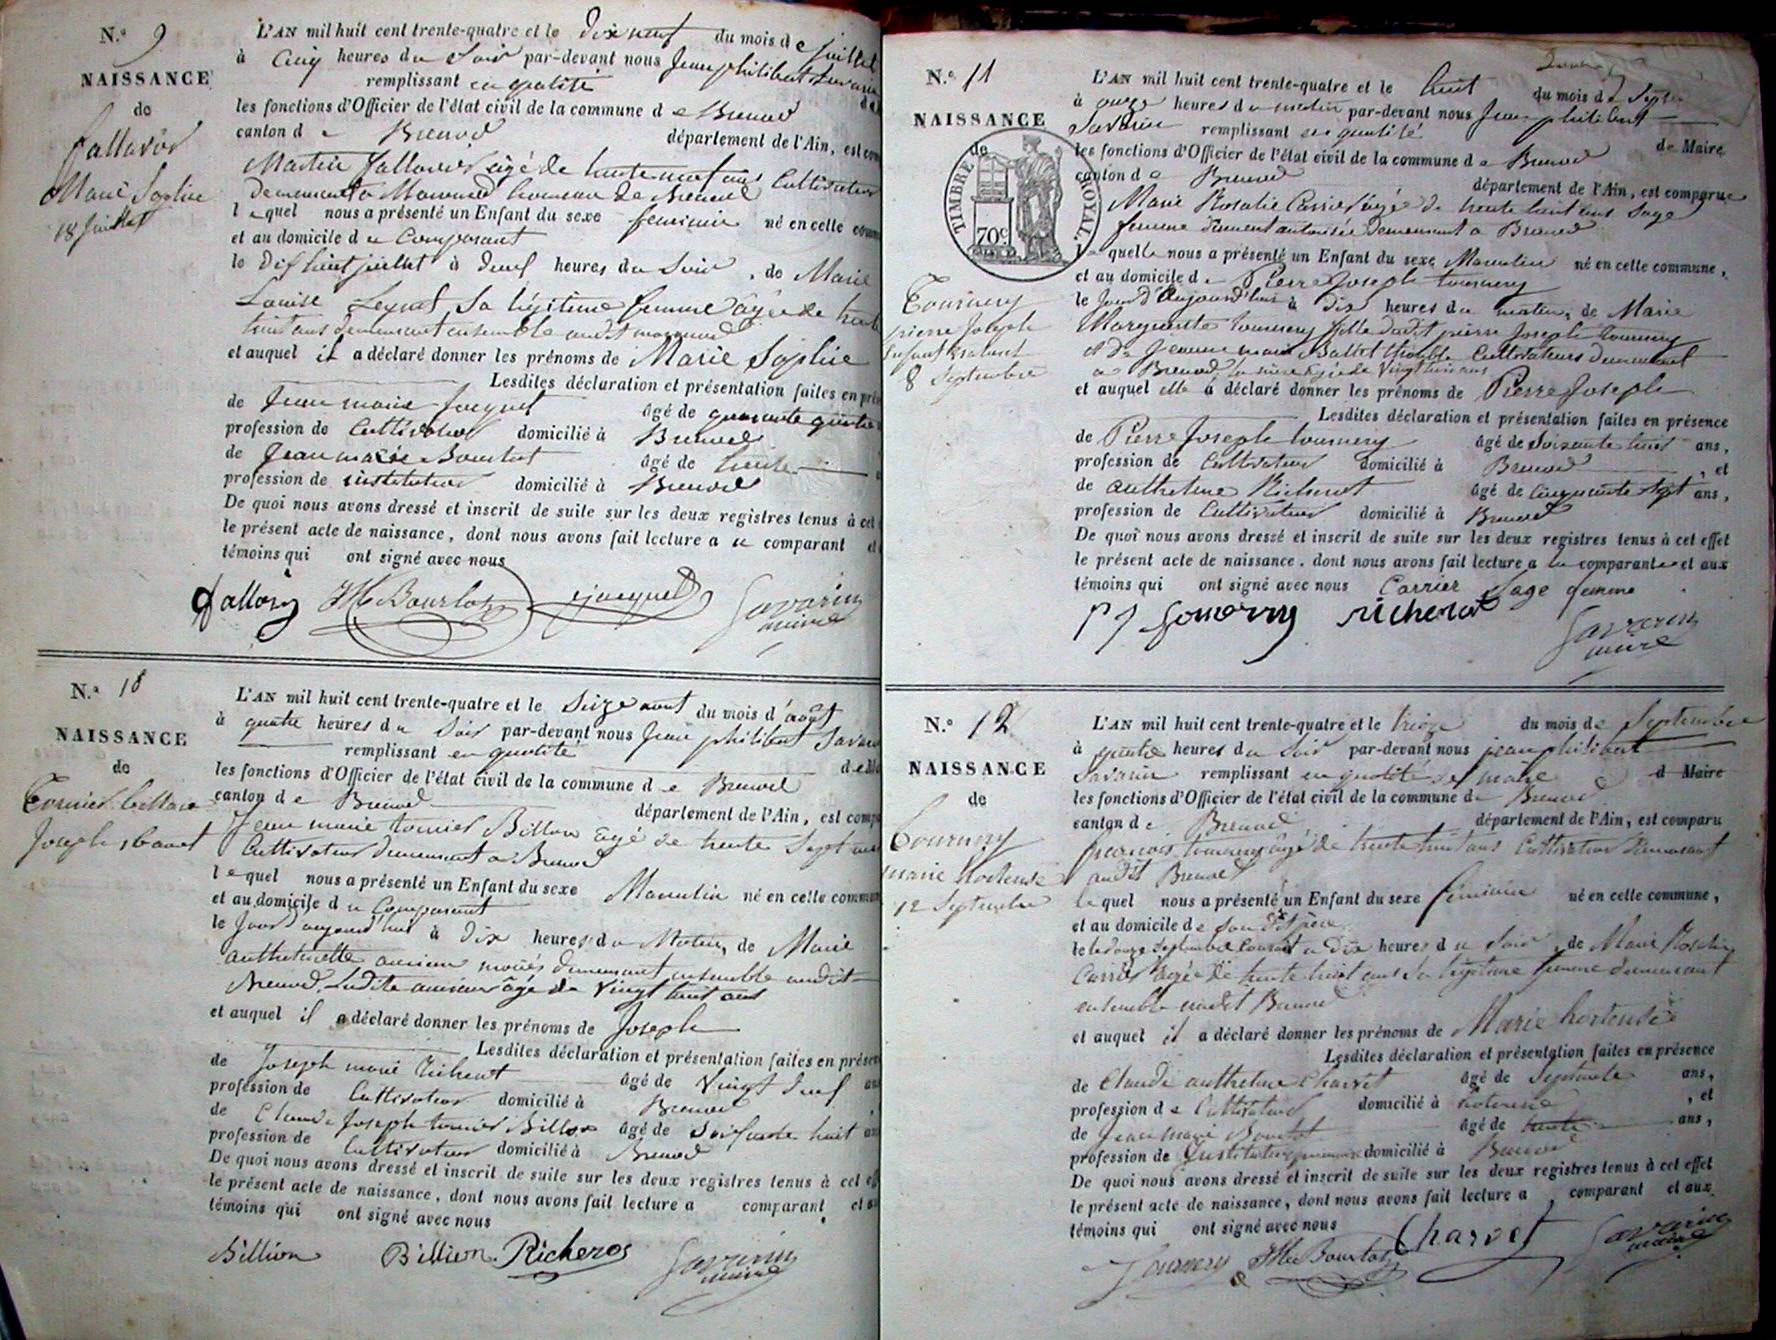 N.º 9
NAISSANCE
de
fallavier
Marie Sophie
18 Juillet
L'AN mil huit cent trente-quatre et le dix neuf du mois de juillet
à Cinq heures du Soir par-devant nous Jean philibert Savarin
remplissant en qualité de
les fonctions d'Officier de l'état civil de la commune d e Brenod
canton d e Brenod département de l'Ain, est com
Martin fallavier agé de trente neuf ans Cultivateur
demeurant a hameau de Brenod
l equel nous a présenté un Enfant du sexe feminin né en cette comm
et au domicile d u Comparant
le Dix huit juillet à deux heures du Soir, de Marie
Louise Sa légitime femme agée de trente
huit ans demeurant ensemble audit
et auquel il a déclaré donner les prénoms de Marie Sophie
Lesdites déclaration et présentation faites en prés
de Jean marie Jacquet âgé de quarante quatre
profession de Cultivateur domicilié à Brenod
de Jean marie Bourlot âgé de trente
profession de instituteur domicilié à Brenod
De quoi nous avons dressé et inscrit de suite sur les deux registres tenus à cet
le présent acte de naissance, dont nous avons fait lecture a u comparant et
témoins qui ont signé avec nous
JM Bourlot Jacquet Savarin
maire
N.º 10
NAISSANCE
de
Tornier billion
Joseph 16 aout
L'AN mil huit cent trente-quatre et le Seize aout du mois d'août
à quatre heures du Soir par-devant nous Jean philibert Savarin
remplissant en qualité de Ma
les fonctions d'Officier de l'état civil de la commune d e Brenod
canton d e Brenod département de l'Ain, est comp
Jean marie tornier Billion agé de trente Sept ans
Cultivateur demeurant a Brenod
l equel nous a présenté un Enfant du sexe Masculin né en cette commun
et au domicile d u Comparant
le Jour d'aujourd'hui à Dix heures du Matin, de Marie
Anthelmette demeurant ensemble audit
Brenod Ladite agée de Vingt huit ans
et auquel il a déclaré donner les prénoms de Joseph
Lesdites déclaration et présentation faites en présen
de Joseph marie Richerot âgé de Vingt deux ans
profession de Cultivateur domicilié à Brenod
de Claude Joseph tornier Billion âgé de Soixante huit an
profession de Cultivateur domicilié à Brenod
De quoi nous avons dressé et inscrit de suite sur les deux registres tenus à cet eff
le présent acte de naissance, dont nous avons fait lecture a comparant et au
témoins qui ont signé avec nous
Billion Billion Richerot Savarin
maire
N.º 11
NAISSANCE
de
TIMBRE ROYAL.
70c
Tournery
pierre Joseph
Enfant naturel
8 Septembre
L'AN mil huit cent trente-quatre et le huit du mois de Septe
à onze heures du matin par-devant nous Jean philibert
Savarin remplissant en qualité de Maire
les fonctions d'Officier de l'état civil de la commune d e Brenod
canton d e Brenod département de l'Ain, est comparue
Marie Rosalie Carrier agée de trente huit ans Sage
femme dument autorisée demeurant a Brenod
l aquelle nous a présenté un Enfant du sexe Masculin né en cette commune,
et au domicile d e Pierre Joseph tournery
le Jour d'Aujourd'hui à Dix heures du matin, de Marie
Marguerite tournery fille dudit pierre Joseph tournery
et de Jeanne marie Ballet Cultivateurs demeurant
a Brenod la mère agée de Vingt huit ans
et auquel elle a déclaré donner les prénoms de Pierre Joseph
Lesdites déclaration et présentation faites en présence
de Pierre Joseph tournery âgé de Soixante huit ans,
profession de Cultivateur domicilié à Brenod, et
de anthelme Richerot âgé de Cinquante Sept ans,
profession de Cultivateur domicilié à Brenod
De quoi nous avons dressé et inscrit de suite sur les deux registres tenus à cet effet
le présent acte de naissance, dont nous avons fait lecture a la comparante et aux
témoins qui ont signé avec nous Carrier Sage femme
p j tournery richerot Savarin
maire
N.º 12
NAISSANCE
de
Tournery
marie hortense
12 Septembre
L'AN mil huit cent trente-quatre et le treize du mois de Septembre
à quatre heures du Soir par-devant nous jean philibert
Savarin remplissant en qualité de maire d Maire
les fonctions d'Officier de l'état civil de la commune d e Brenod
canton d e Brenod département de l'Ain, est comparu
françois tournery agé de trente huit ans Cultivateur demeurant
audit Brenod
l equel nous a présenté un Enfant du sexe féminin né en cette commune,
et au domicile d e Son dit père
le le douze Septembre Courant à Dix heures du Soir, de Marie Rosalie
Carrier agée de trente huit ans Sa légitime femme demeurant
ensemble audit Brenod
et auquel il a déclaré donner les prénoms de Marie hortense
Lesdites déclaration et présentation faites en présence
de Claude anthelme Charvet âgé de Septante ans,
profession d e Cultivateur domicilié à , et
de Jean marie Bourlot âgé de trente ans,
profession de Instituteur primaire domicilié à Brenod
De quoi nous avons dressé et inscrit de suite sur les deux registres tenus à cet effet
le présent acte de naissance, dont nous avons fait lecture a comparant et aux
témoins qui ont signé avec nous Charvet Savarin
maire
Tournery JM Bourlot